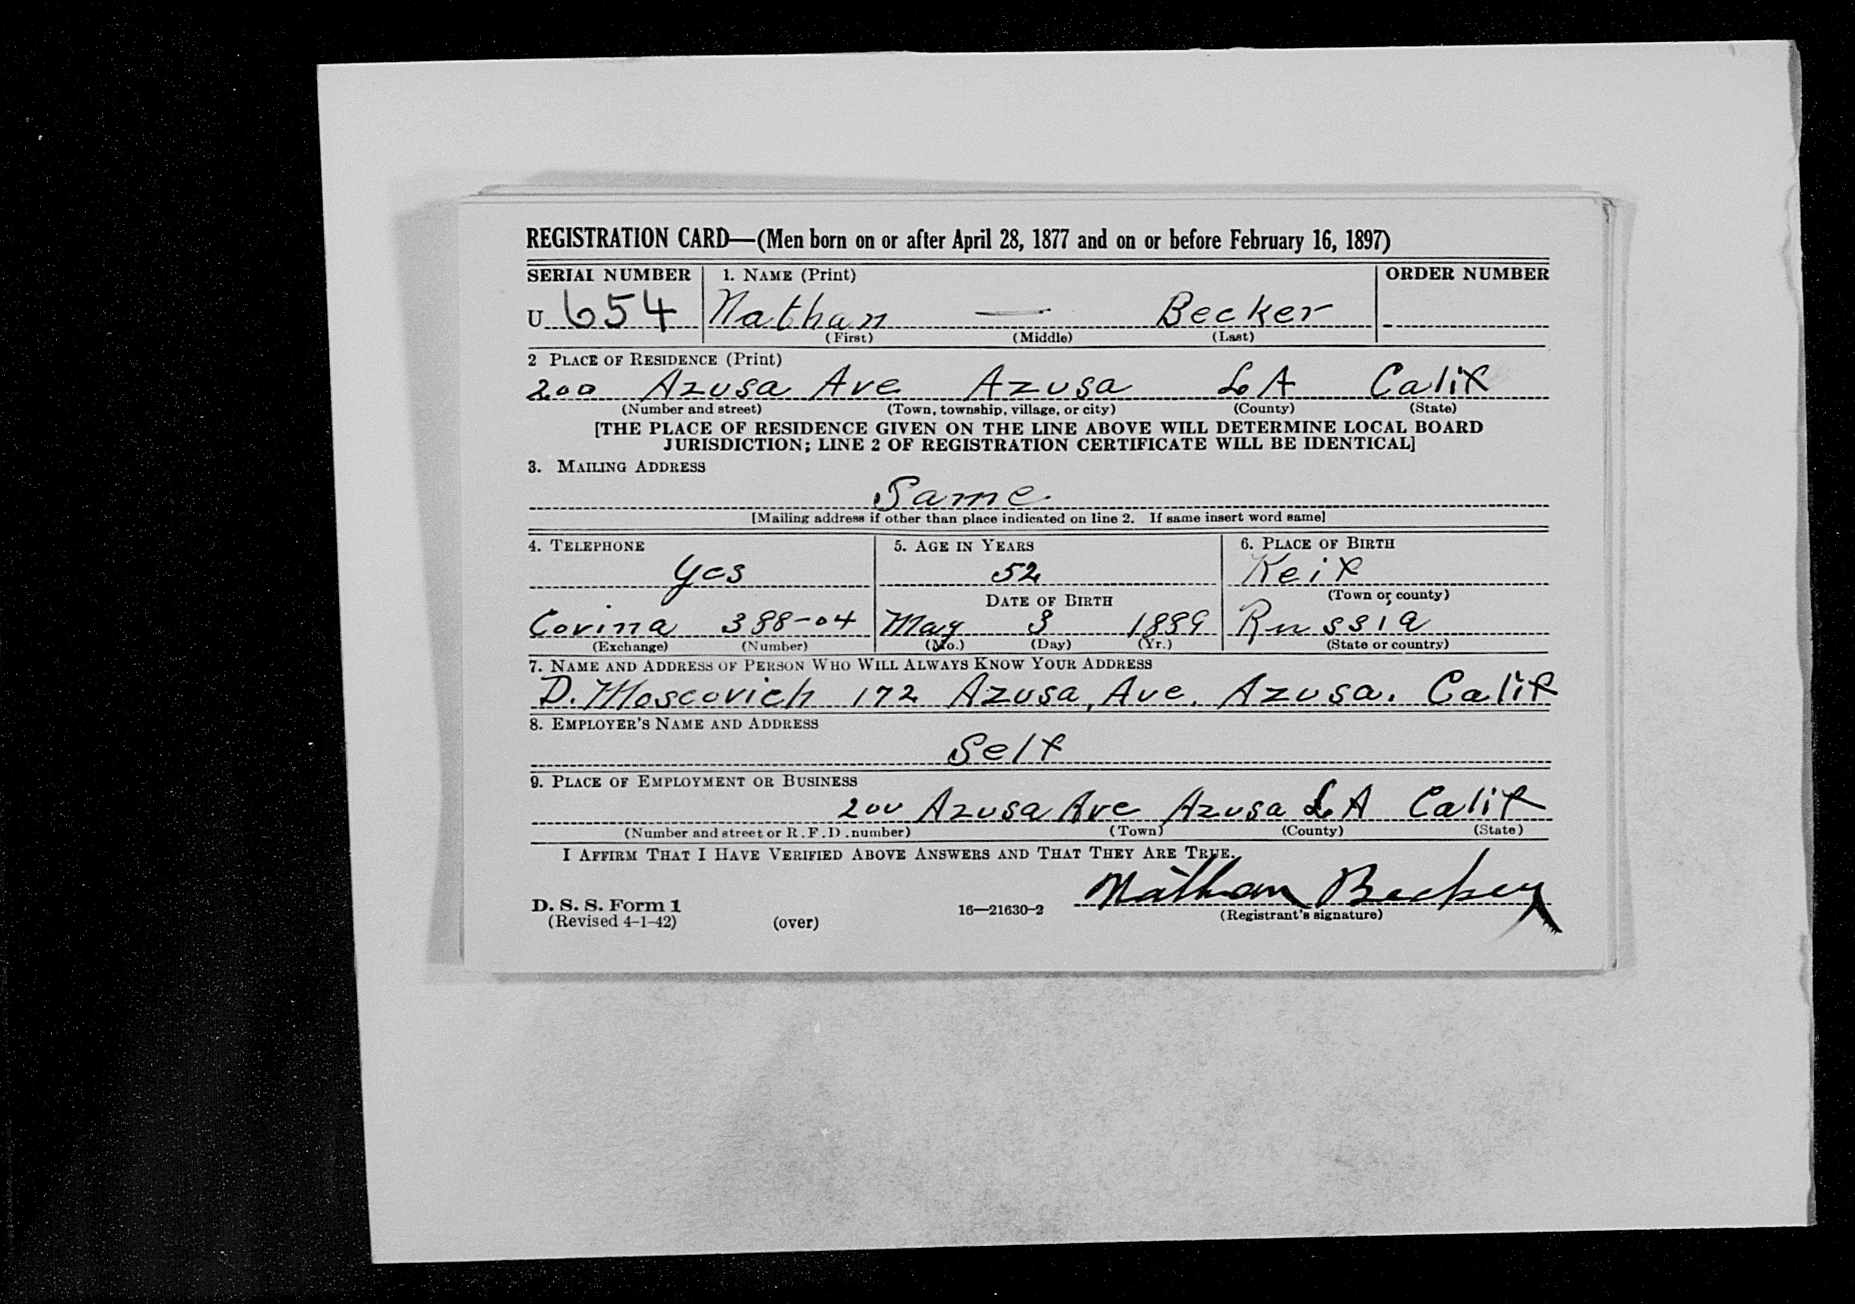 REGISTRATION CARD—(Men born on or after April 28, 1877 and on or before February 16, 1897)
SERIAL NUMBER 1. NAME (Print) ORDER NUMBER
U 654 Nathan — Becker
(First) (Middle) (Last)
2 PLACE OF RESIDENCE (Print)
200 Azusa Ave Azusa LA Calif
(Number and street) (Town, township, village, or city) (County) (State)
[THE PLACE OF RESIDENCE GIVEN ON THE LINE ABOVE WILL DETERMINE LOCAL BOARD
JURISDICTION; LINE 2 OF REGISTRATION CERTIFICATE WILL BE IDENTICAL]
3. MAILING ADDRESS
Same
[Mailing address if other than place indicated on line 2. If same insert word same]
4. TELEPHONE 5. AGE IN YEARS 6. PLACE OF BIRTH
Yes 52 Keif
DATE OF BIRTH (Town or county)
Covina 388-04 May 3 1889 Russia
(Exchange) (Number) (Mo.) (Day) (Yr.) (State or country)
7. NAME AND ADDRESS OF PERSON WHO WILL ALWAYS KNOW YOUR ADDRESS
D. Moscovich 172 Azusa, Ave. Azusa. Calif
8. EMPLOYER'S NAME AND ADDRESS
Self
9. PLACE OF EMPLOYMENT OR BUSINESS
200 Azusa Ave Azusa LA Calif
(Number and street or R. F. D. number) (Town) (County) (State)
I AFFIRM THAT I HAVE VERIFIED ABOVE ANSWERS AND THAT THEY ARE TRUE.
Nathan Becker
D. S. S. Form 1
(Revised 4-1-42) (over) 16—21630-2 (Registrant's signature)